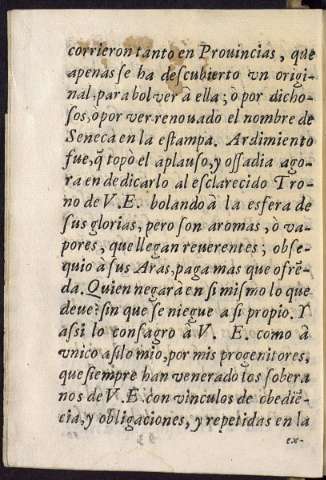 corrieron tanto en Prouincias, que
apenas se ha descubierto vn origi-
nal para bolver à ella; ò por dicho-
sos, o por ver renouado el nombre de
Seneca en la estampa. Ardimiento
fue, q̃ topò el aplauso, y ossadia ago-
ra en dedicarlo al esclarecido Tro-
no de V. E. bolando à la esfera de
sus glorias, pero son aromas, ò va-
pores, que llegan reuerentes; obse-
quio à sus Aras, paga mas que ofrẽ-
da. Quien negara en si mismo lo que
deue? sin que se niegue a si propio. Y
assi lo consagro à V. E. como à
vnico asilo mio, por mis progenitores,
que siempre han venerado los sobera
nos de V. E. con vinculos de obediẽ-
cia, y obligaciones, y repetidas en la
ex-